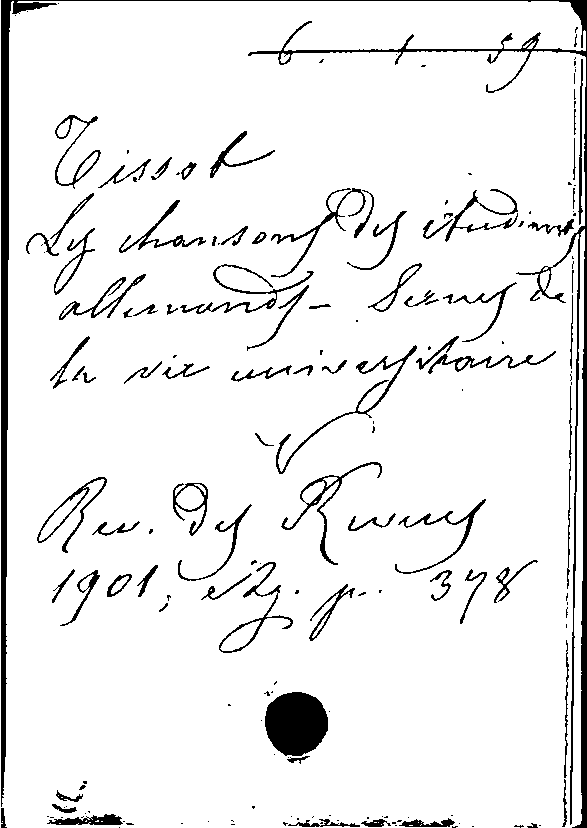 6. 1. 59
Tissot
Les chansons des étudiants
allemands – Scènes de
la vie universitaire
Rev. des Revues
1901, p. 378